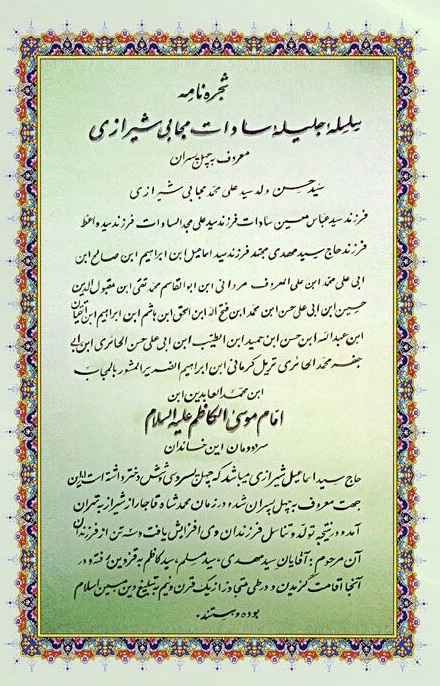 شجره نامه
سلسله جلیله سادات مجابی شیرازی
معروف به چهل پسران
سید حسن ولد سید علی محمد مجابی شیرازی
فرزند سید عباس معین سادات فرزند سید علی مجد السادات فرزند سید واعظ
فرزند حاج سید مهدی مجتهد فرزند سید اسماعیل ابن ابراهیم ابن صالح ابن
ابی علی محمد ابن علی المعروف مردانی ابن ابوالقاسم محمد تقی ابن مقبول الدین
حسین ابن ابی علی حسن ابن محمد ابن فتح الله ابن اسحق ابن هاشم ابن ابراهیم ابن
ابن عبدالله ابن حسن ابن حمید ابن الطیب ابن ابی علی حسن الحائری ابن ابی
جعفر محمد الحائری نزیل کرمانی ابن ابراهیم الضریر المشهور بالمجاب
ابن محمد العابدین ابن
امام موسی الکاظم علیه السلام
سر دودمان این خاندان
حاج سید اسماعیل شیرازی میباشد که چهل پسر و سی و شش دختر داشته است این
جهت معروف به چهل پسران شده و در زمان محمد شاه قاجار از شیراز به تهران
آمد و در نتیجه تولد و تناسل فرزندان وی افزایش یافت و سه تن از فرزندان
آن مرحوم: آقایان سید مهدی، سید مسلم، سید کاظم به قزوین رفته و در
آنجا اقامت گزیدن و در طی متجاوز از یک قرن و نیم به تبلیغ دین مبین اسلام
بوده و هستند.